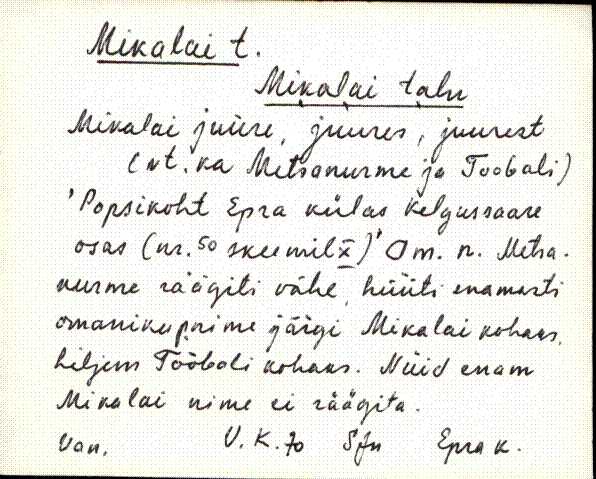 Mikalai t.
Mikalai talu
Mikalai juure, juures, juurest
(vt. ka Metsanurme ja Toobali)
'Popsikoht Epra külas Kelgussaare
osas (nr. 50 skeemil X)' Om. n. Metsa-
nurme räägiti vähe, hüüti enamasti
omaniku p.nime järgi Mikalai kohaks,
hiljem Toobali kohaks. Nüid enam
Mikalai nime ei räägita.
Van. V. K. 70 SJn Epra k.